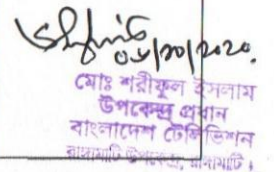 ০৮/১০/২০২০
মোঃ শরীফুল ইসলাম
উপকেন্দ্র প্রধান
বাংলাদেশ টেলিভিশন
রাঙ্গামাটি উপকেন্দ্র, রাঙ্গামাটি।